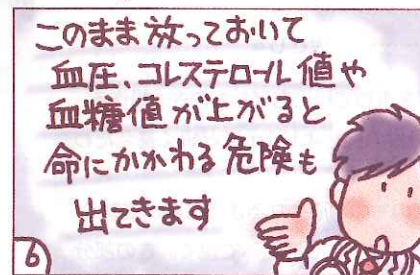 このまま放っておいて
血圧、コレステロール値や
血糖値が上がると
命にかかわる危険も
出てきます
6